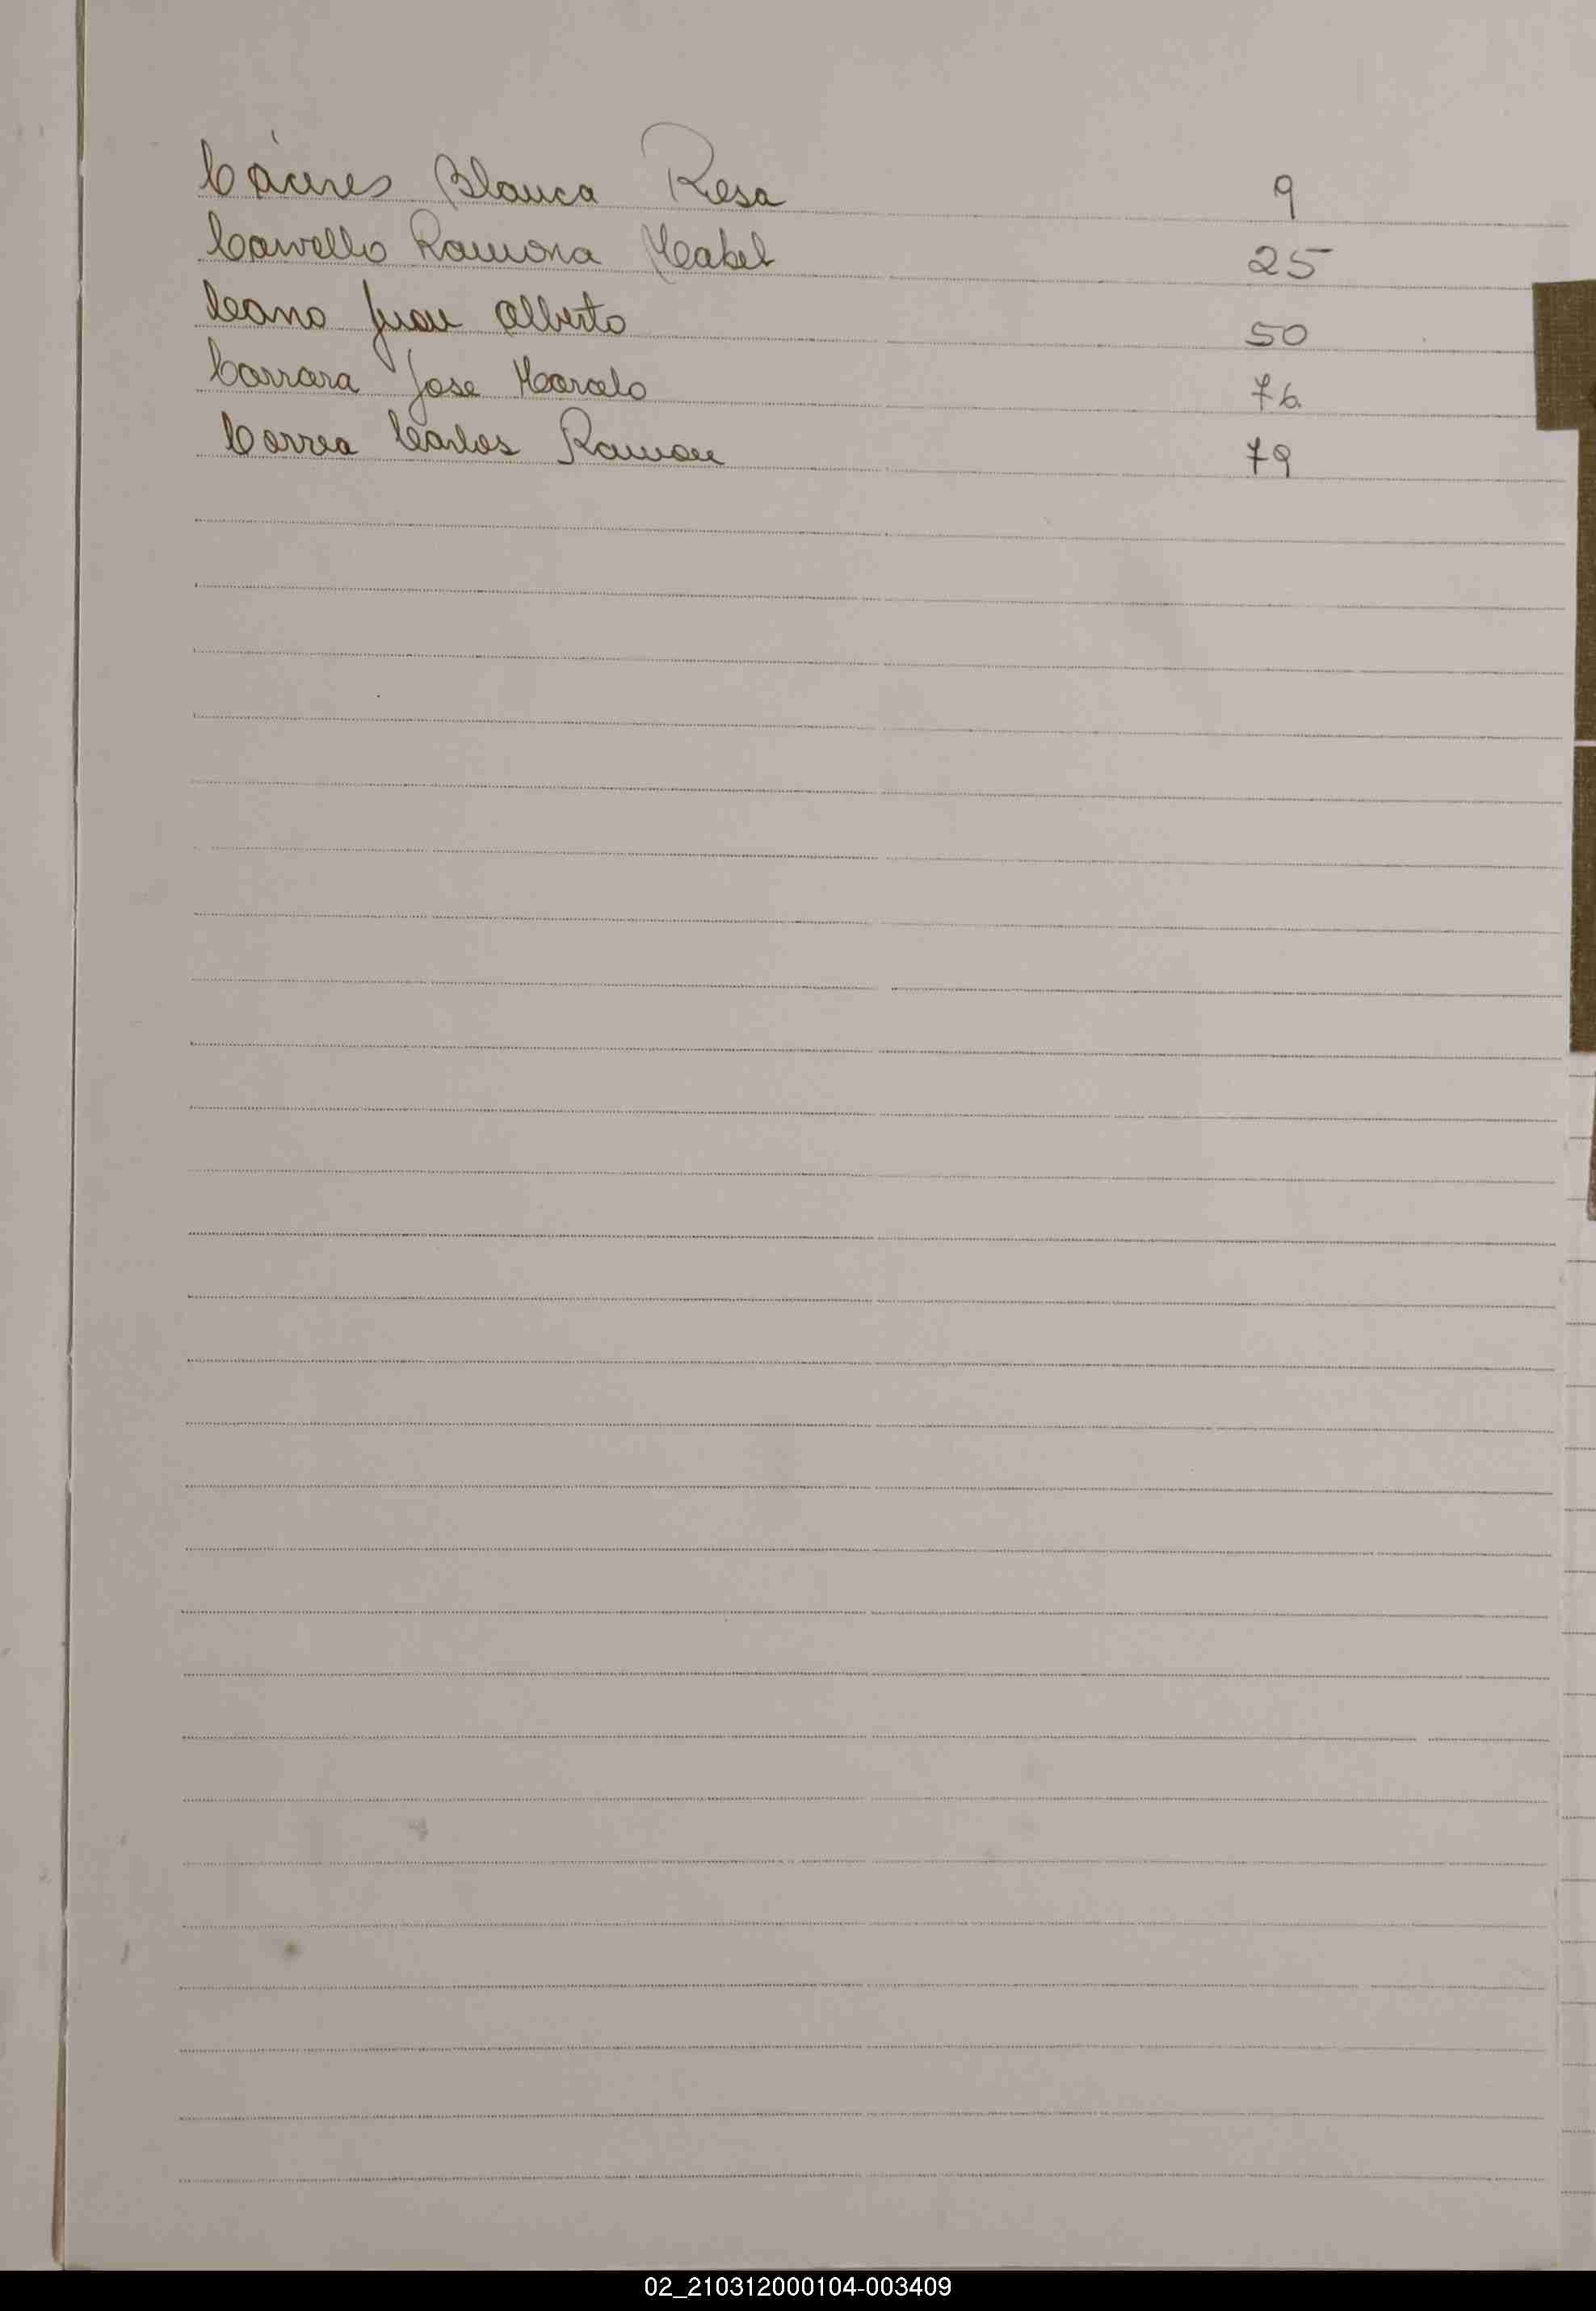 Cáceres Blanca Rosa 9
Carvallo Ramona Mabel 25
Cano Juan Alberto 50
Carrara Jose Marcelo 76
Correa Carlos Ramon 79
02_210312000104-003409